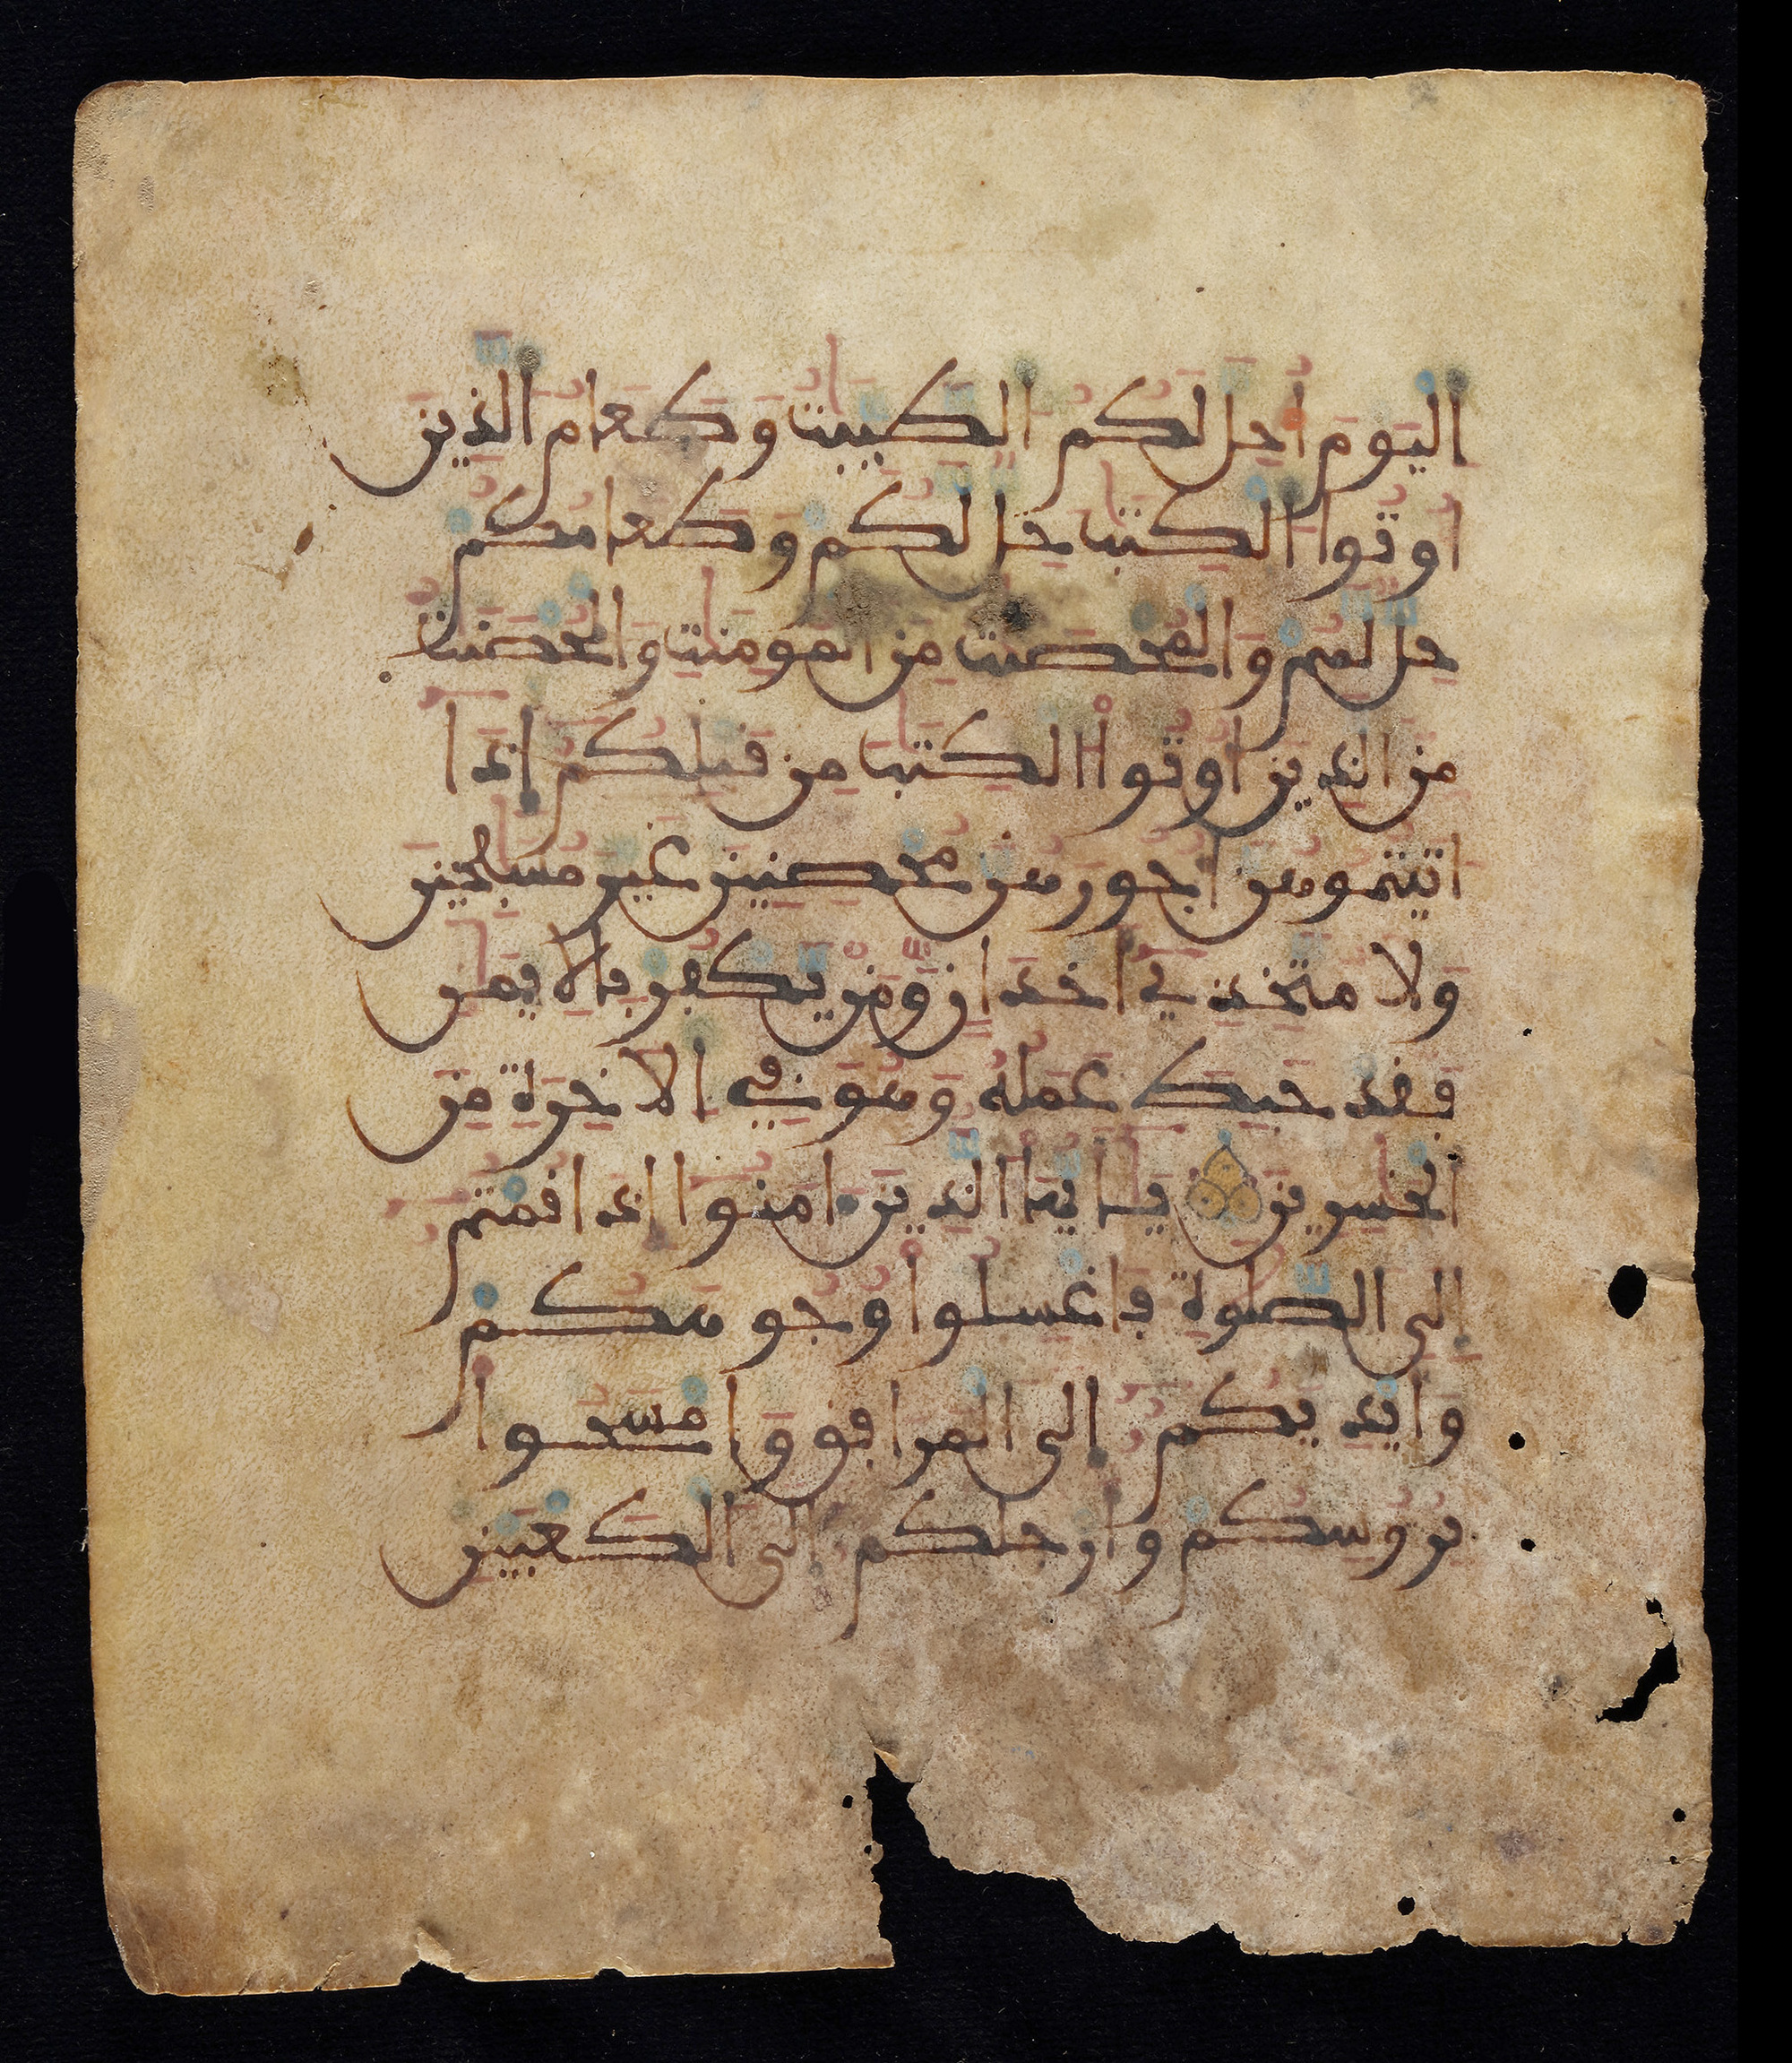 اليوم أحل لكم الطيبت وطعام الذين
أوتوا الكتب حل لكم وطعامكم
حل لهم والمحصنت من المومنت والمحصنت
من الذين أوتوا الكتب من قبلكم إذا
اتيتموهن أجورهن محصنين غير مسافحين
ولا متخذي أخدان ومن يكفر بالايمن
فقد حبط عمله وهو في الاخرة من
الخسرين يايها الذين ءامنوا إذا قمتم
إلى الصلوة فاغسلوا وجوهكم
وأيديكم إلى المرافق وامسحوا
بروسكم وأرجلكم إلى الكعبين